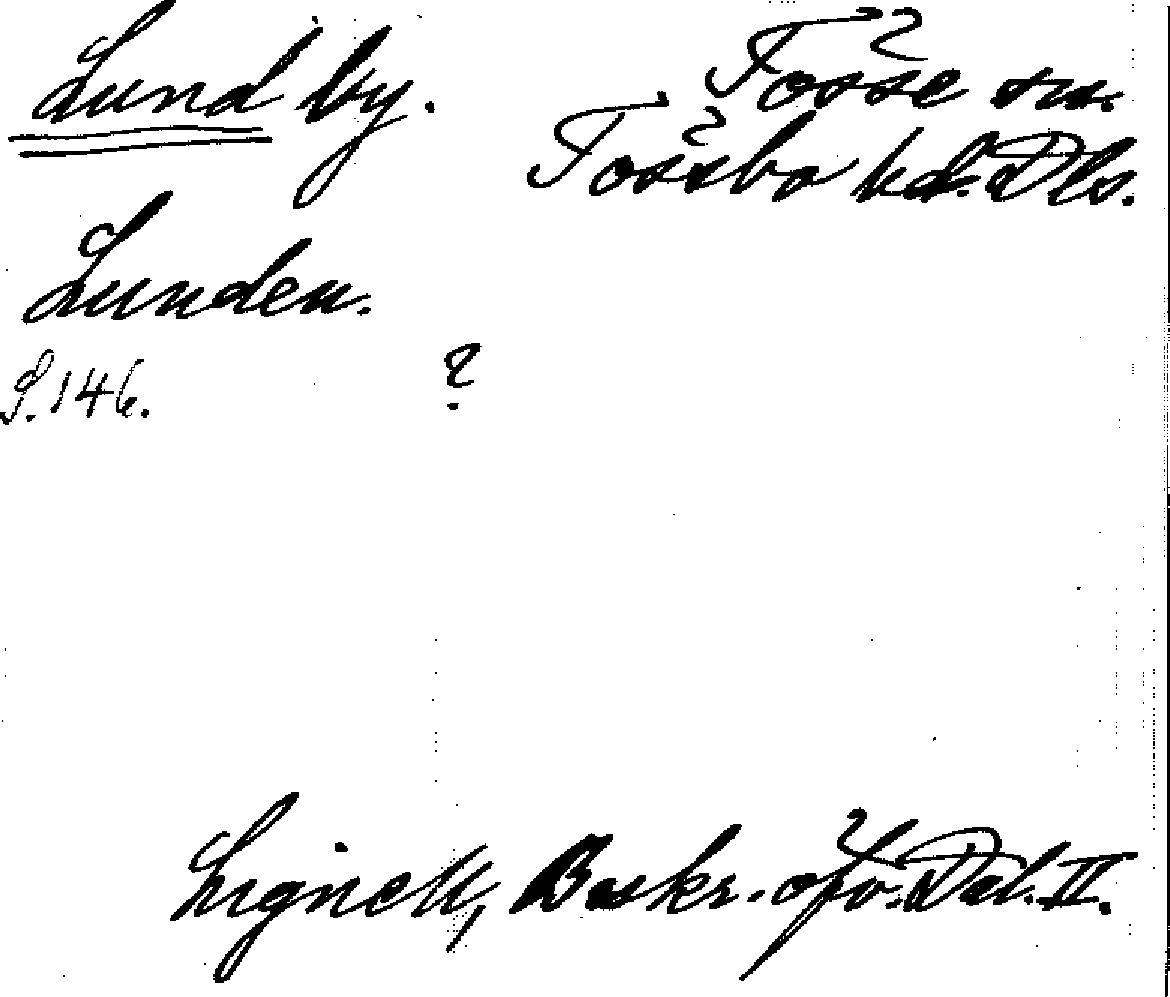 Lund by. Tösse sn.
Tössbo hd. Dls.
Lunden.
S. 146. ?
Lignell, Beskr. öfv. Dal. II.